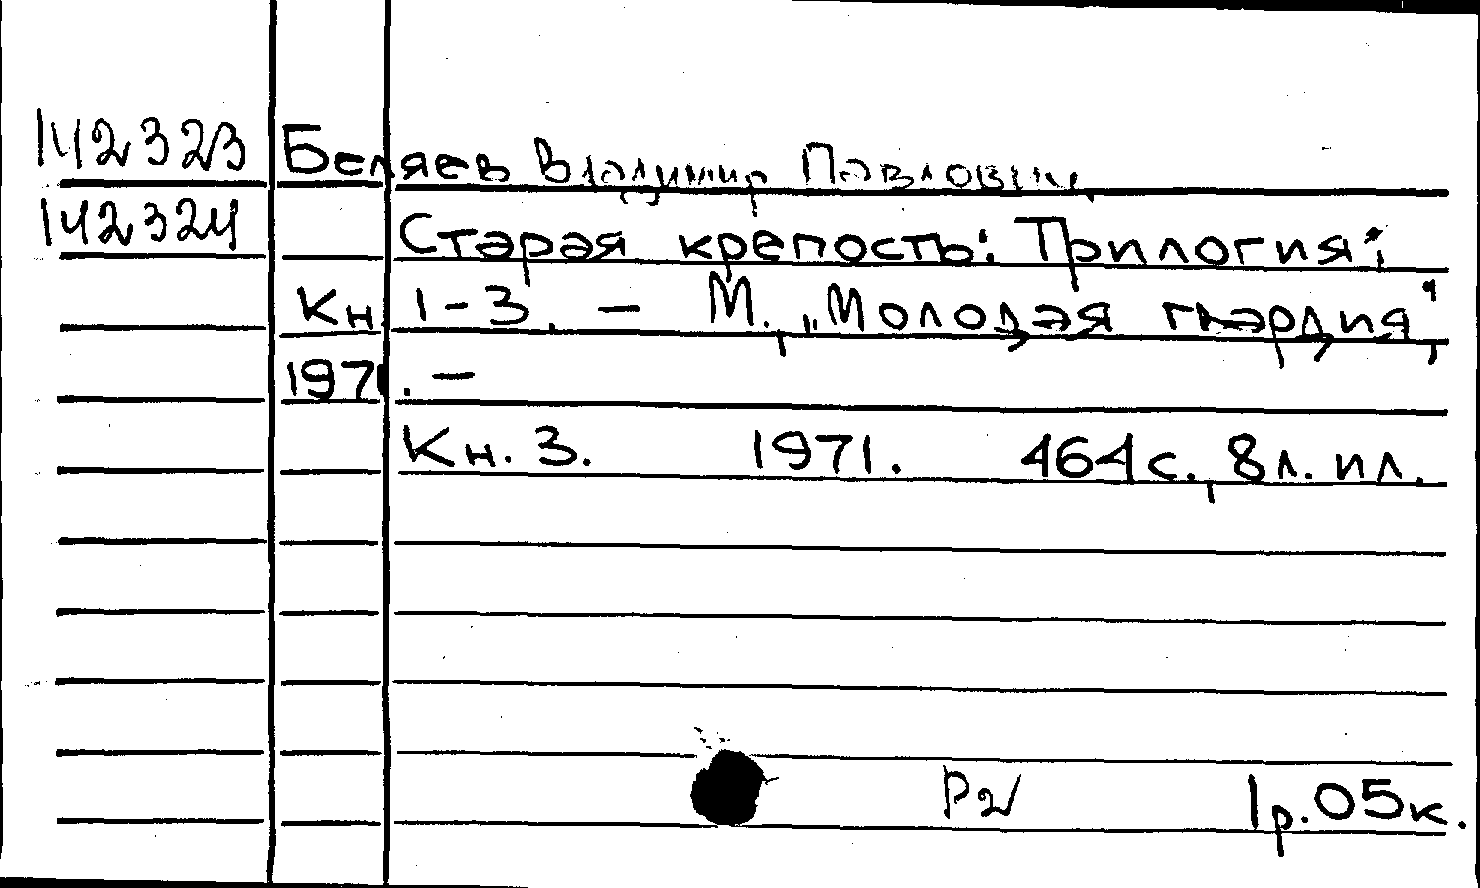 142323 Беляев Владимир Павлович.
142324 Старая крепость: Трилогия;
Кн. 1-3. - М., „Молодая гвардия",
1971. -
Кн. 3. 1971. 464 с., 8 л. ил.
Р2 1р.05к.